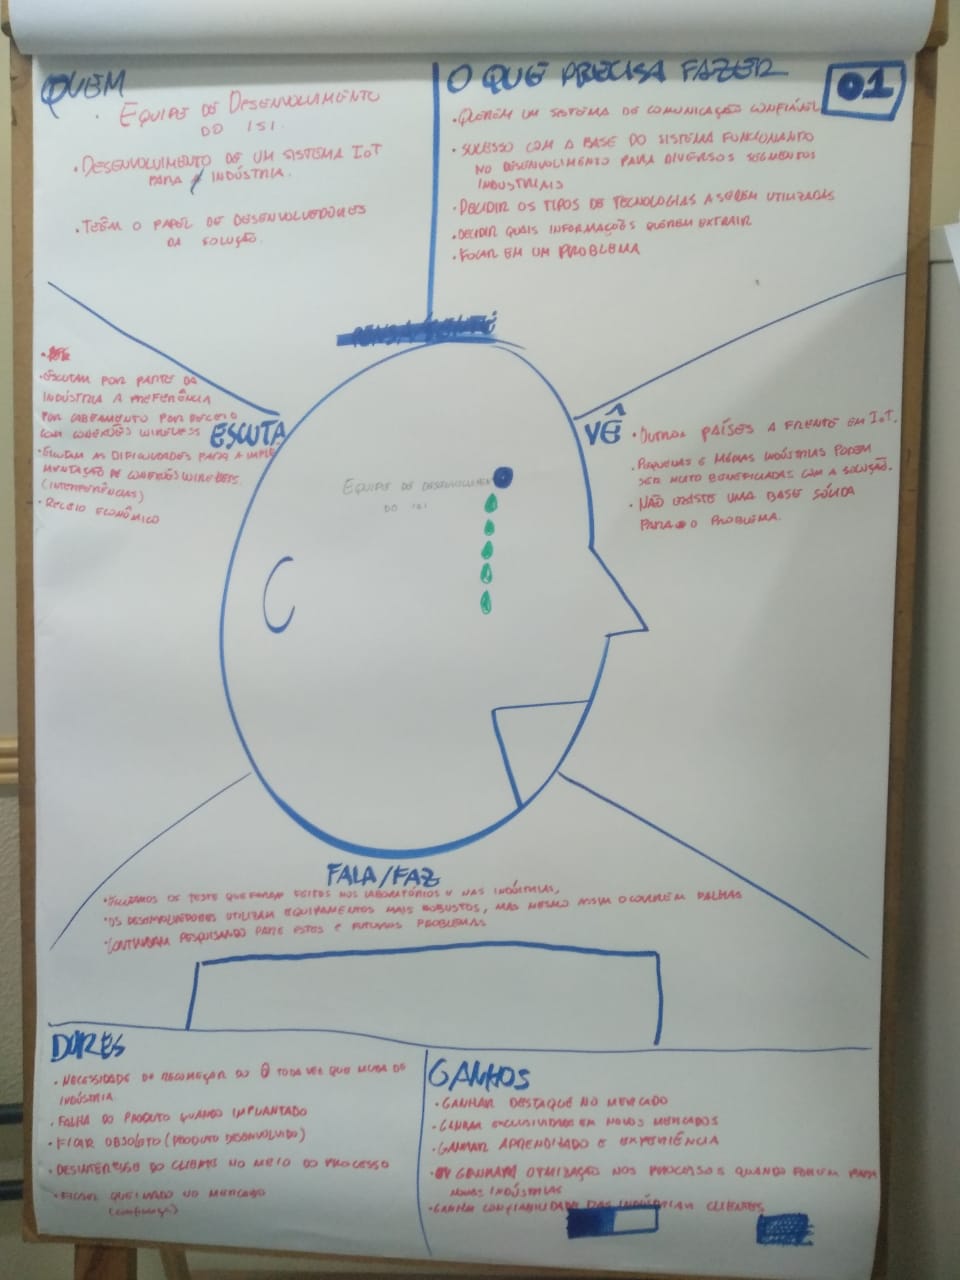 QUEM
• EQUIPE DE DESENVOLVIMENTO
DO ISI.
• DESENVOLVIMENTO DE UM SISTEMA IoT
PARA INDÚSTRIA.
• TEÊM O PAPEL DE DESENVOLVEDORES
DA SOLUÇÃO.
O QUE PRECISA FAZER
01
• QUEREM UM SISTEMA DE COMUNICAÇÃO CONFIÁVEL
• SUCESSO COM A BASE DO SISTEMA FUNCIONANDO
NO DESENVOLVIMENTO PARA DIVERSOS SEGMENTOS
INDUSTRIAIS
• DECIDIR OS TIPOS DE TECNOLOGIAS A SEREM UTILIZADAS
• DECIDIR QUAIS INFORMAÇÕES QUEREM EXTRAIR
• FOCAR EM UM PROBLEMA
ESCUTA
• ESCUTAM POR PARTE DA
INDÚSTRIA A PREFERÊNCIA
POR CABEAMENTO POR RECEIO
COM CONEXÕES WIRELESS
• ESCUTAM AS DIFICULDADES PARA A IMPLE
MENTAÇÃO DE CONEXÕES WIRELESS.
(INTERFERÊNCIAS)
• RECEIO ECONÔMICO
VÊ
• OUTROS PAÍSES A FRENTE EM IoT.
• PEQUENAS E MÉDIAS INDÚSTRIAS PODEM
SER MUITO BENEFICIADAS COM A SOLUÇÃO.
• NÃO EXISTE UMA BASE SÓLIDA
PARA O PROBLEMA.
EQUIPE DE DESENVOLVIMENTO
DO ISI
FALA/FAZ
• DE TESTE QUE FORAM FEITOS NOS LABORATÓRIOS NAS INDÚSTRIAS,
• OS DESENVOLVEDORES UTILIZAM EQUIPAMENTOS MAIS ROBUSTOS, MAS MESMO ASSIM OCORREM FALHAS
• CONTINUAM PESQUISANDO PARA ESTES E FUTUROS PROBLEMAS
DORES
• NECESSIDADE DE RECOMEÇAR DO 0 TODA VEZ QUE MUDA DE
INDÚSTRIA.
• FALHA DO PRODUTO QUANDO IMPLANTADO
• FICAR OBSOLETO (PRODUTO DESENVOLVIDO)
• DESINTERESSE DO CLIENTE NO MEIO DO PROCESSO
• FICAR QUEIMADO NO MERCADO
(CONFIANÇA)
GANHOS
• GANHAR DESTAQUE NO MERCADO
• GANHAR EXCLUSIVIDADE EM NOVOS MERCADOS
• GANHAR APRENDIZADO E EXPERIÊNCIA
• GANHAM OTIMIZAÇÃO NOS PROCESSOS QUANDO FOREM PARA
NOVAS INDÚSTRIAS
• GANHA CONFIABILIDADE DAS INDÚSTRIAS CLIENTES